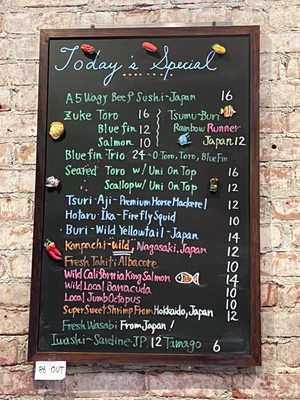 Today's Special
A5 Wagy Beef Sushi-Japan 16
Zuke Toro 16
Bluefin 12
Salmon 10
Tsumu-Buri
Rainbow Runner
Japan 12
Bluefin Trio 24 O Toro, Toro, Blue Fin
Seared Toro w/ Uni On Top 16
Scallop w/ Uni On Top 12
Tsuri-Aji-Premium Horse Mackerel 12
Hotaru-Ika-Firefly Squid 10
Buri-Wild Yellowtail-Japan 14
Kanpachi-wild, Nagasaki, Japan 12
Fresh Tahiti Albacore 10
Wild California King Salmon 14
Wild Local Barracuda 10
Local Jumb Octopus 10
Super Sweet Shrimp From Hokkaido, Japan 12
Fresh Wasabi From Japan!
Iwashi-Sardine-JP. 12 Tamago 6
86 OUT